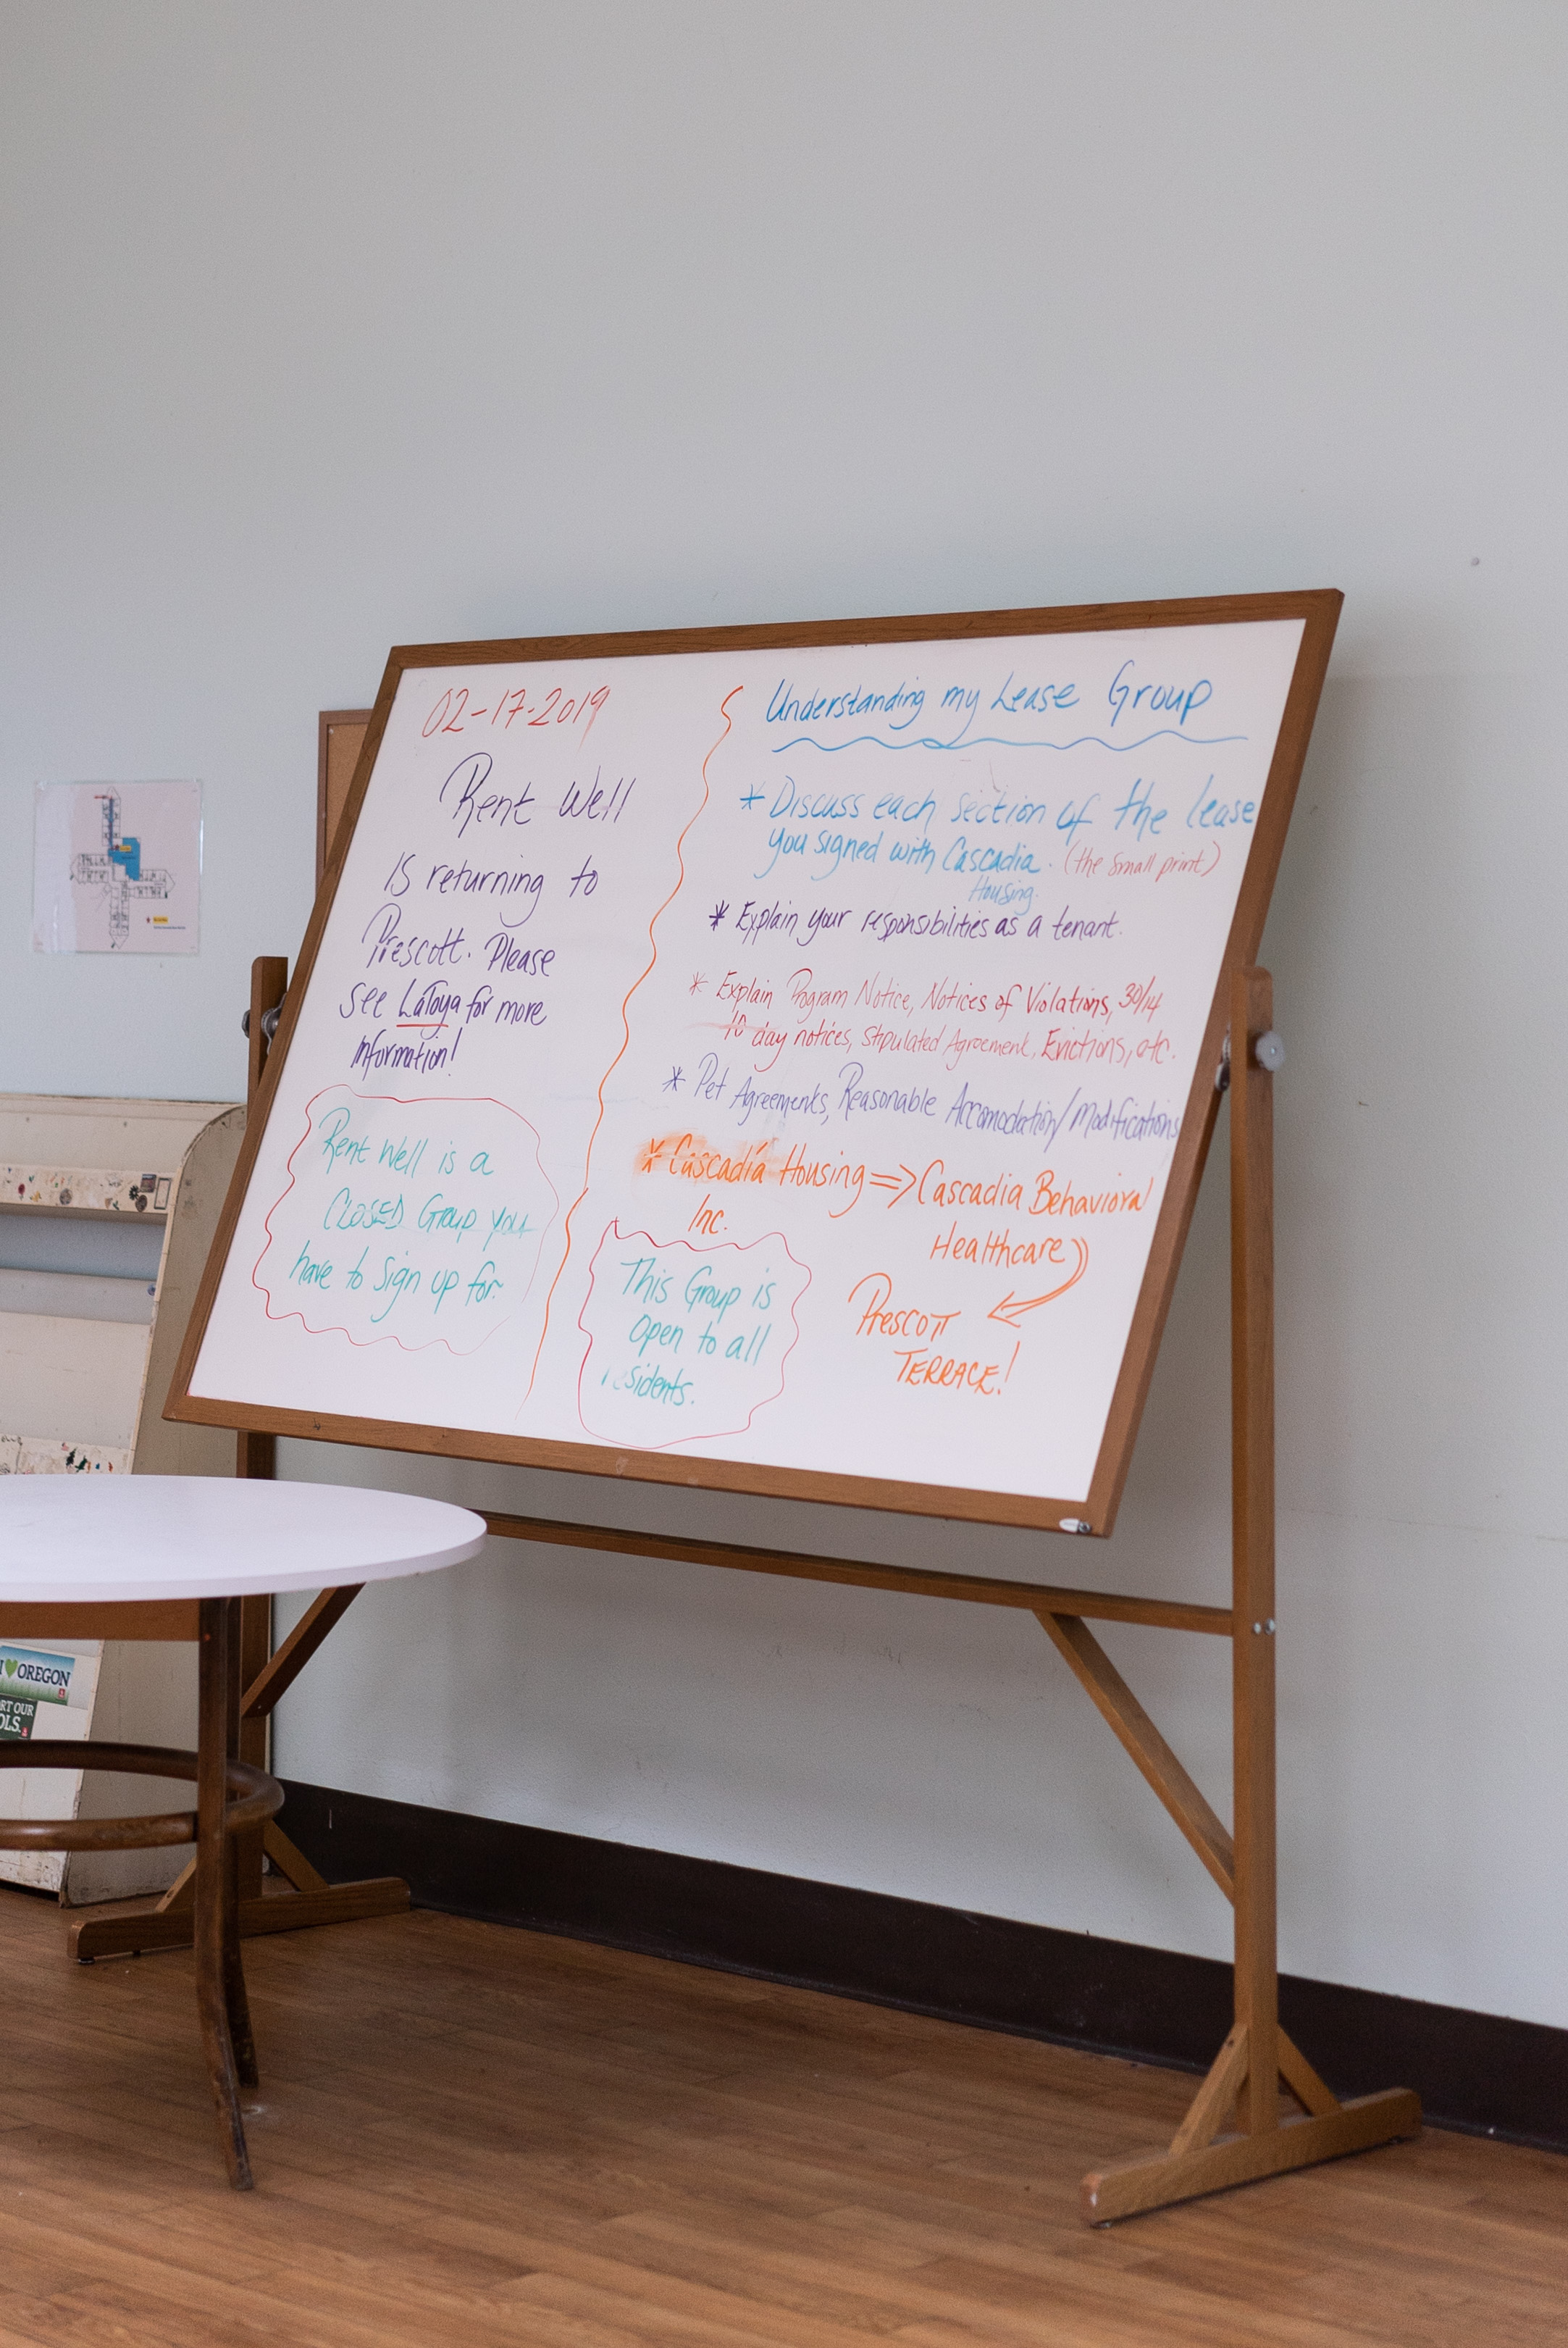 02-17-2019
Rent Well
is returning to
Prescott. Please
see LaToya for more
information!
Rent Well is a
CLOSED Group you
have to sign up for.
Understanding my Lease Group
* Discuss each section of the lease
you signed with Cascadia. (the small print)
Housing.
* Explain your responsibilities as a tenant.
* Explain Program Notice, Notices of Violations, 30/14
10 day notices, Stipulated Agreement, Evictions, etc.
* Pet Agreements, Reasonable Accomodation/Modifications
* Cascadia Housing => Cascadia Behavioral
Inc.
Healthcare
Prescott
TERRACE!
This Group is
Open to all
residents.
I ♥ OREGON
RT OUR
OLS.